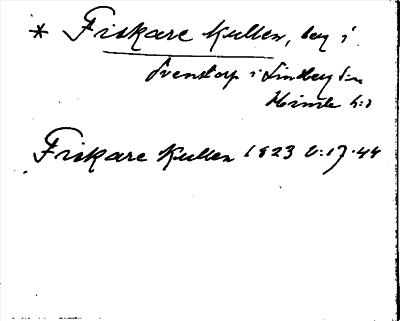 * Fiskare Kullen, bey i
Svenstorp i Lindberg sn
Himle hd
Fiskare Kullen 1823 6:17.44